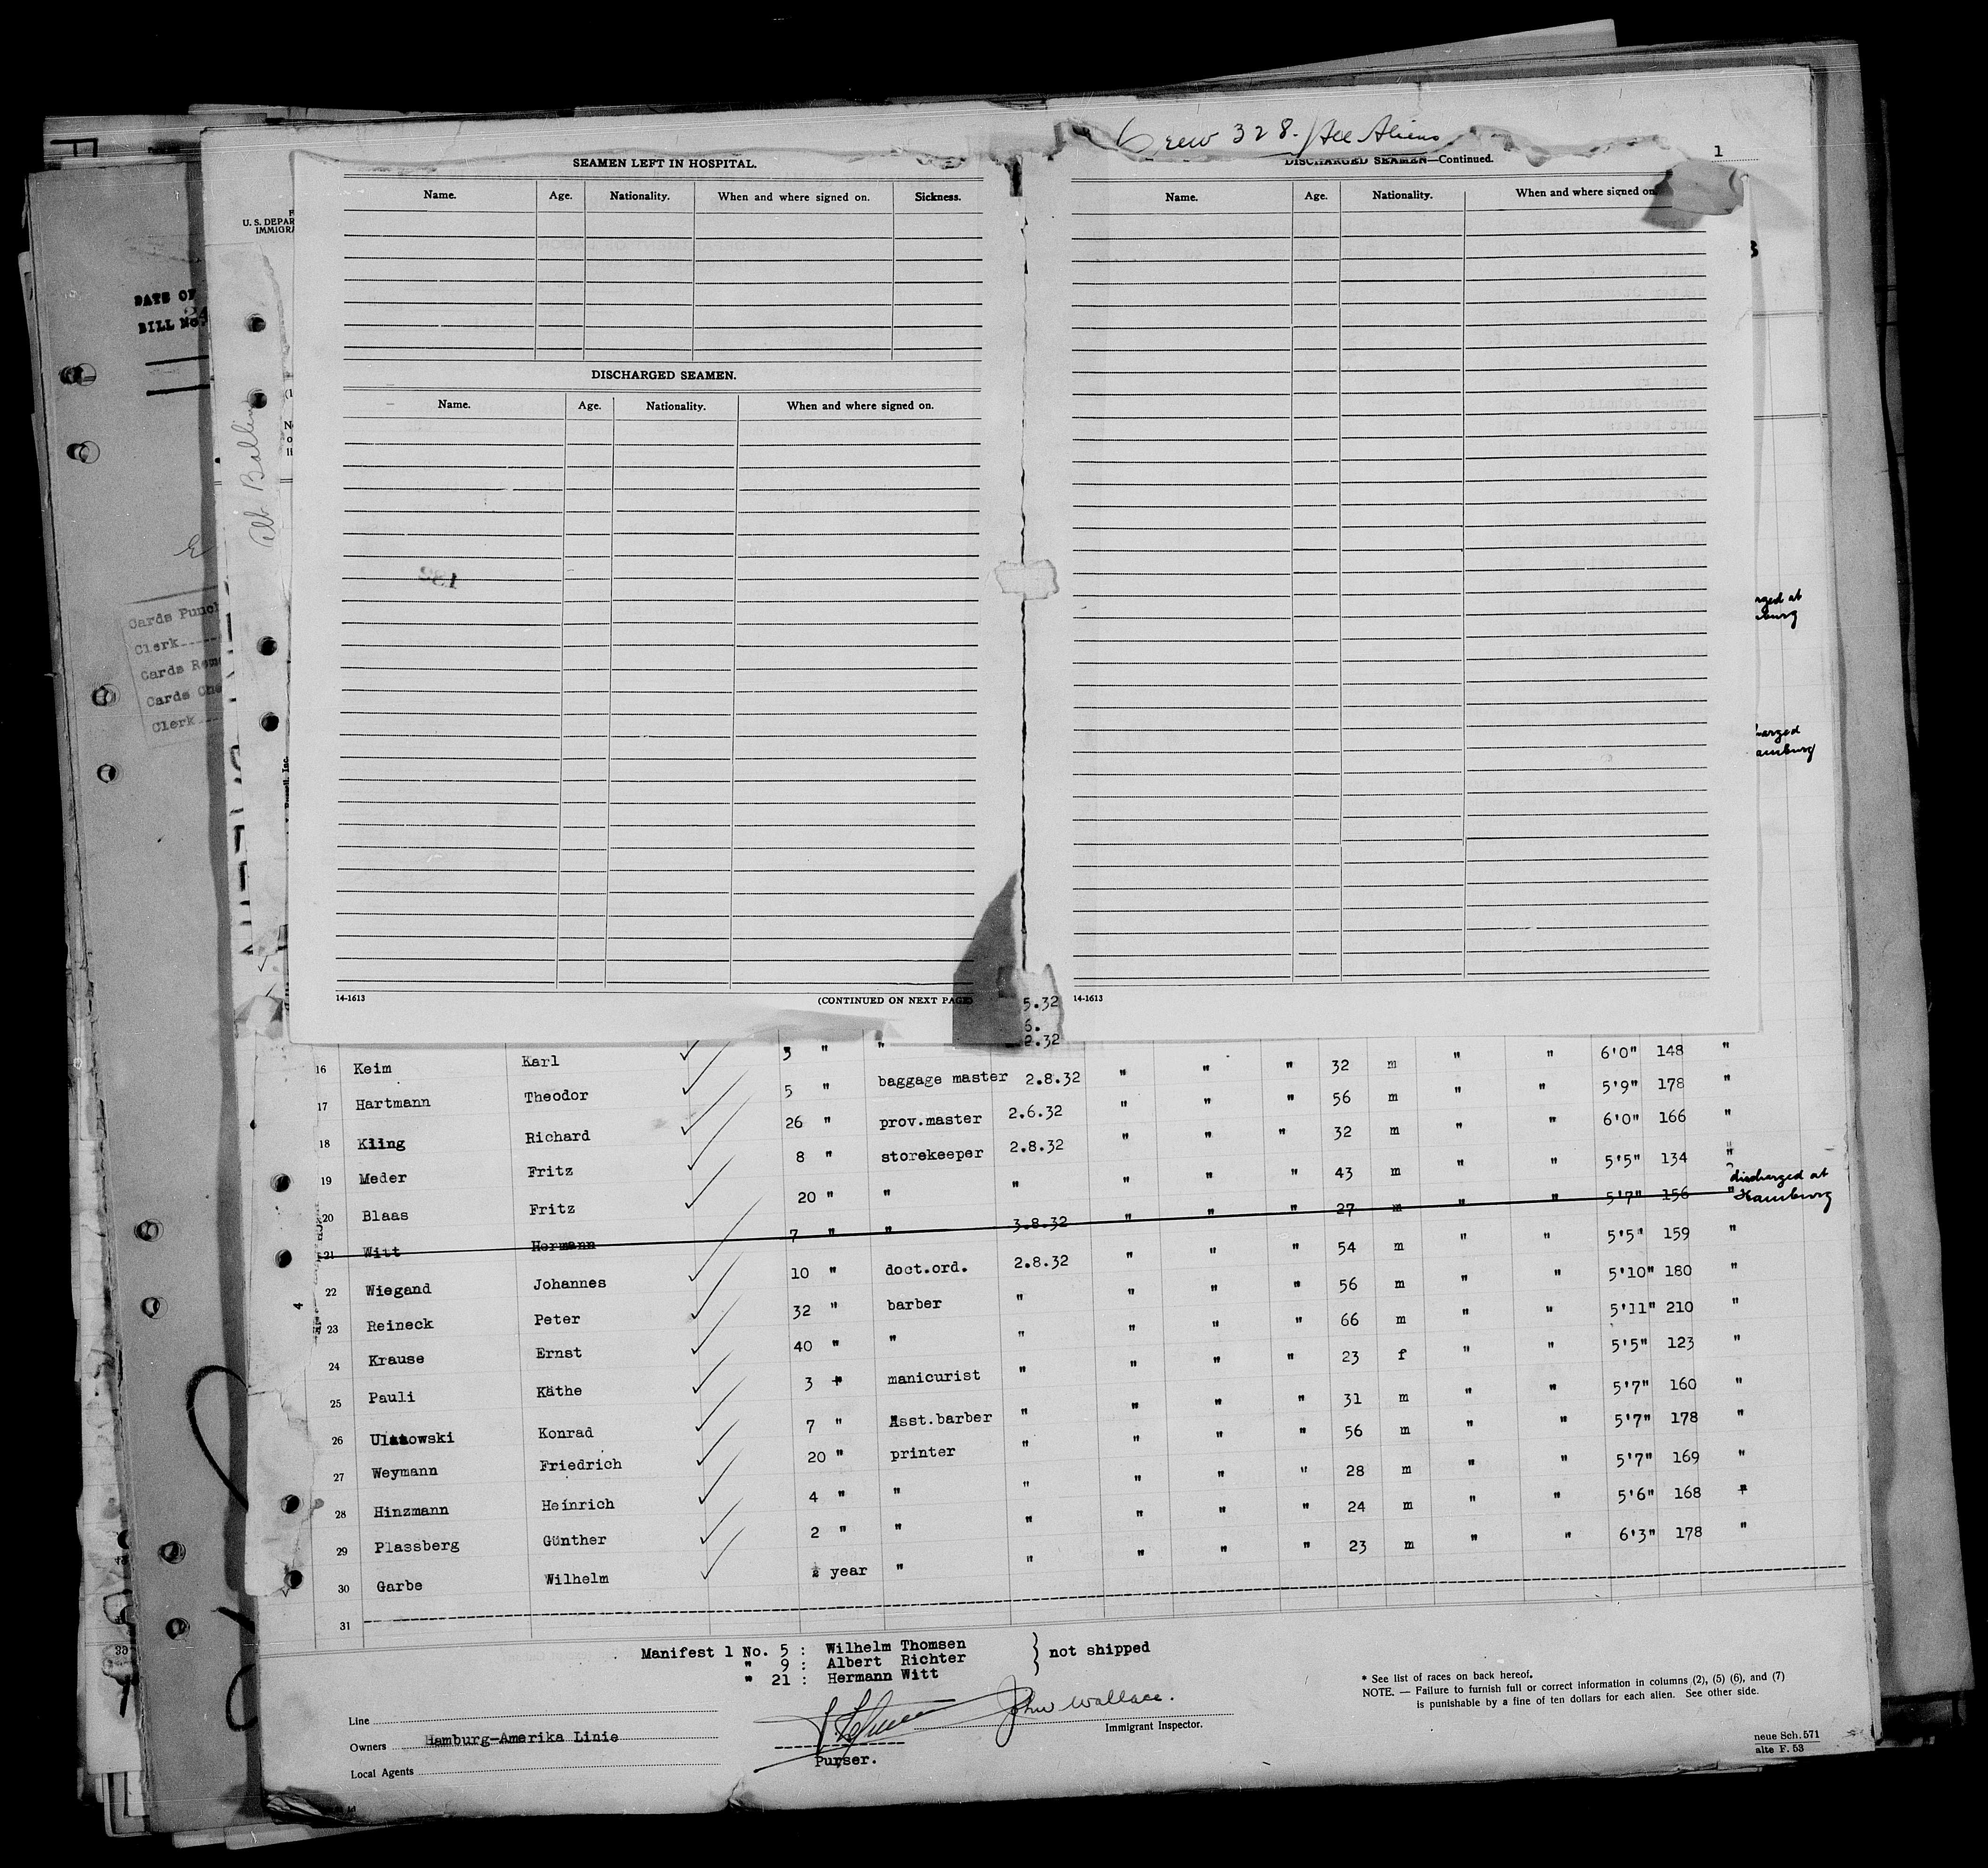 Crew 328. All Aliens
1
SEAMEN LEFT IN HOSPITAL.
Name. Age. Nationality. When and where signed on. Sickness.
DISCHARGED SEAMEN.
Name. Age. Nationality. When and where signed on.
14-1613 (CONTINUED ON NEXT PAGE)
DISCHARGED SEAMEN—Continued.
Name. Age. Nationality. When and where signed on
14-1613
U. S. DEPAR
IMMIGRA
DATE OF
BILL No.
Cards Punch
Clerk
Cards Rem
Cards Che
Clerk
rged at
burg
harged
amburg
5.32
6.
2.32
16 Keim Karl 3 " " 2.32 " " " 32 m " " 6'0" 148 "
17 Hartmann Theodor 5 " baggage master 2.8.32 " " " 56 m " " 5'9" 178 "
18 Kling Richard 26 " prov.master 2.6.32 " " " 32 m " " 6'0" 166 "
19 Meder Fritz 8 " storekeeper 2.8.32 " " " 43 m " " 5'5" 134 "
20 Blaas Fritz 20 " " " " " " 27 m " " 5'7" 156 " discharged at Hamburg
21 Witt Hermann 7 " " 3.8.32 " " " 54 m " " 5'5" 159 "
22 Wiegand Johannes 10 " doct.ord. 2.8.32 " " " 56 m " " 5'10" 180 "
23 Reineck Peter 32 " barber " " " " 66 m " " 5'11" 210 "
24 Krause Ernst 40 " " " " " " 23 f " " 5'5" 123 "
25 Pauli Käthe 3 " manicurist " " " " 31 m " " 5'7" 160 "
26 Konrad 7 " Asst.barber " " " " 56 m " " 5'7" 178 "
27 Weymann Friedrich 20 " printer " " " " 28 m " " 5'7" 169 "
28 Hinzmann Heinrich 4 " " " " " " 24 m " " 5'6" 168 "
29 Plassberg Günther 2 " " " " " " 23 m " " 6'3" 178 "
30 Garbe Wilhelm year " "
31
Manifest 1 No. 5 : Wilhelm Thomsen
" 9 : Albert Richter } not shipped
" 21 : Hermann Witt
John Wallace.
Line
Immigrant Inspector.
Owners Hamburg-Amerika Linie
Purser.
Local Agents
* See list of races on back hereof.
NOTE. — Failure to furnish full or correct information in columns (2), (5) (6), and (7)
is punishable by a fine of ten dollars for each alien. See other side.
neue Sch. 571
alte F. 53